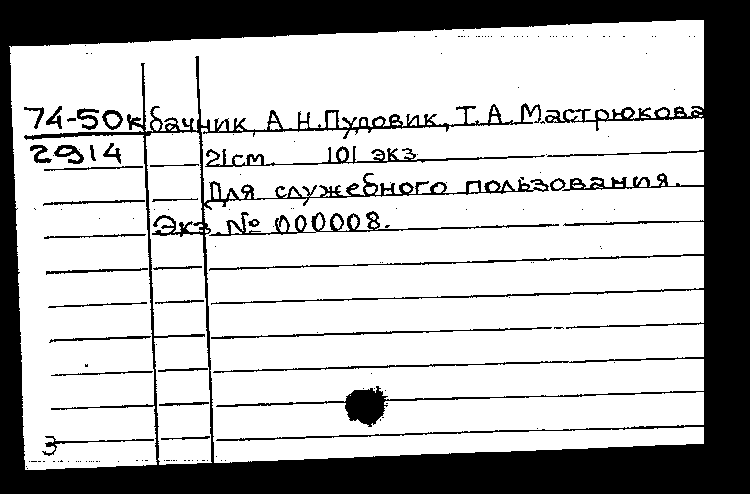 74-50к бачник, А.Н.Пудовик, Т.А.Мастрюкова
2914 21см. 101 экз.
Для служебного пользования.
Экз. № 000008.
3